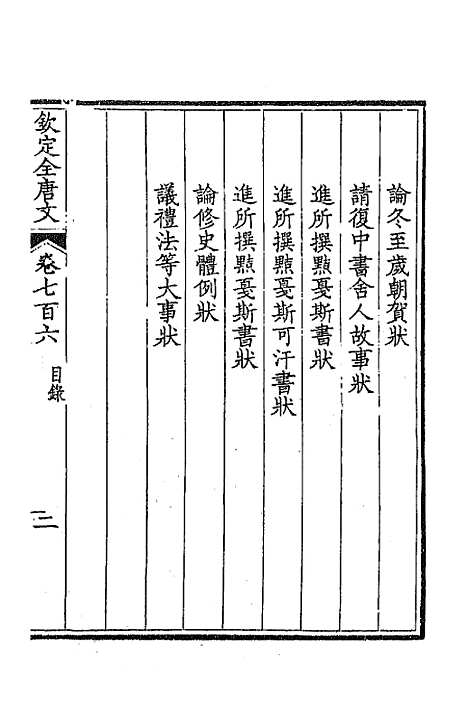 論冬至歲朝賀狀
請復中書舍人故事狀
進所撰黠戛斯書狀
進所撰黠戛斯可汗書狀
進所撰黠戛斯書狀
論修史體例狀
議禮法等大事狀
欽定全唐文
卷七百六
目錄
二